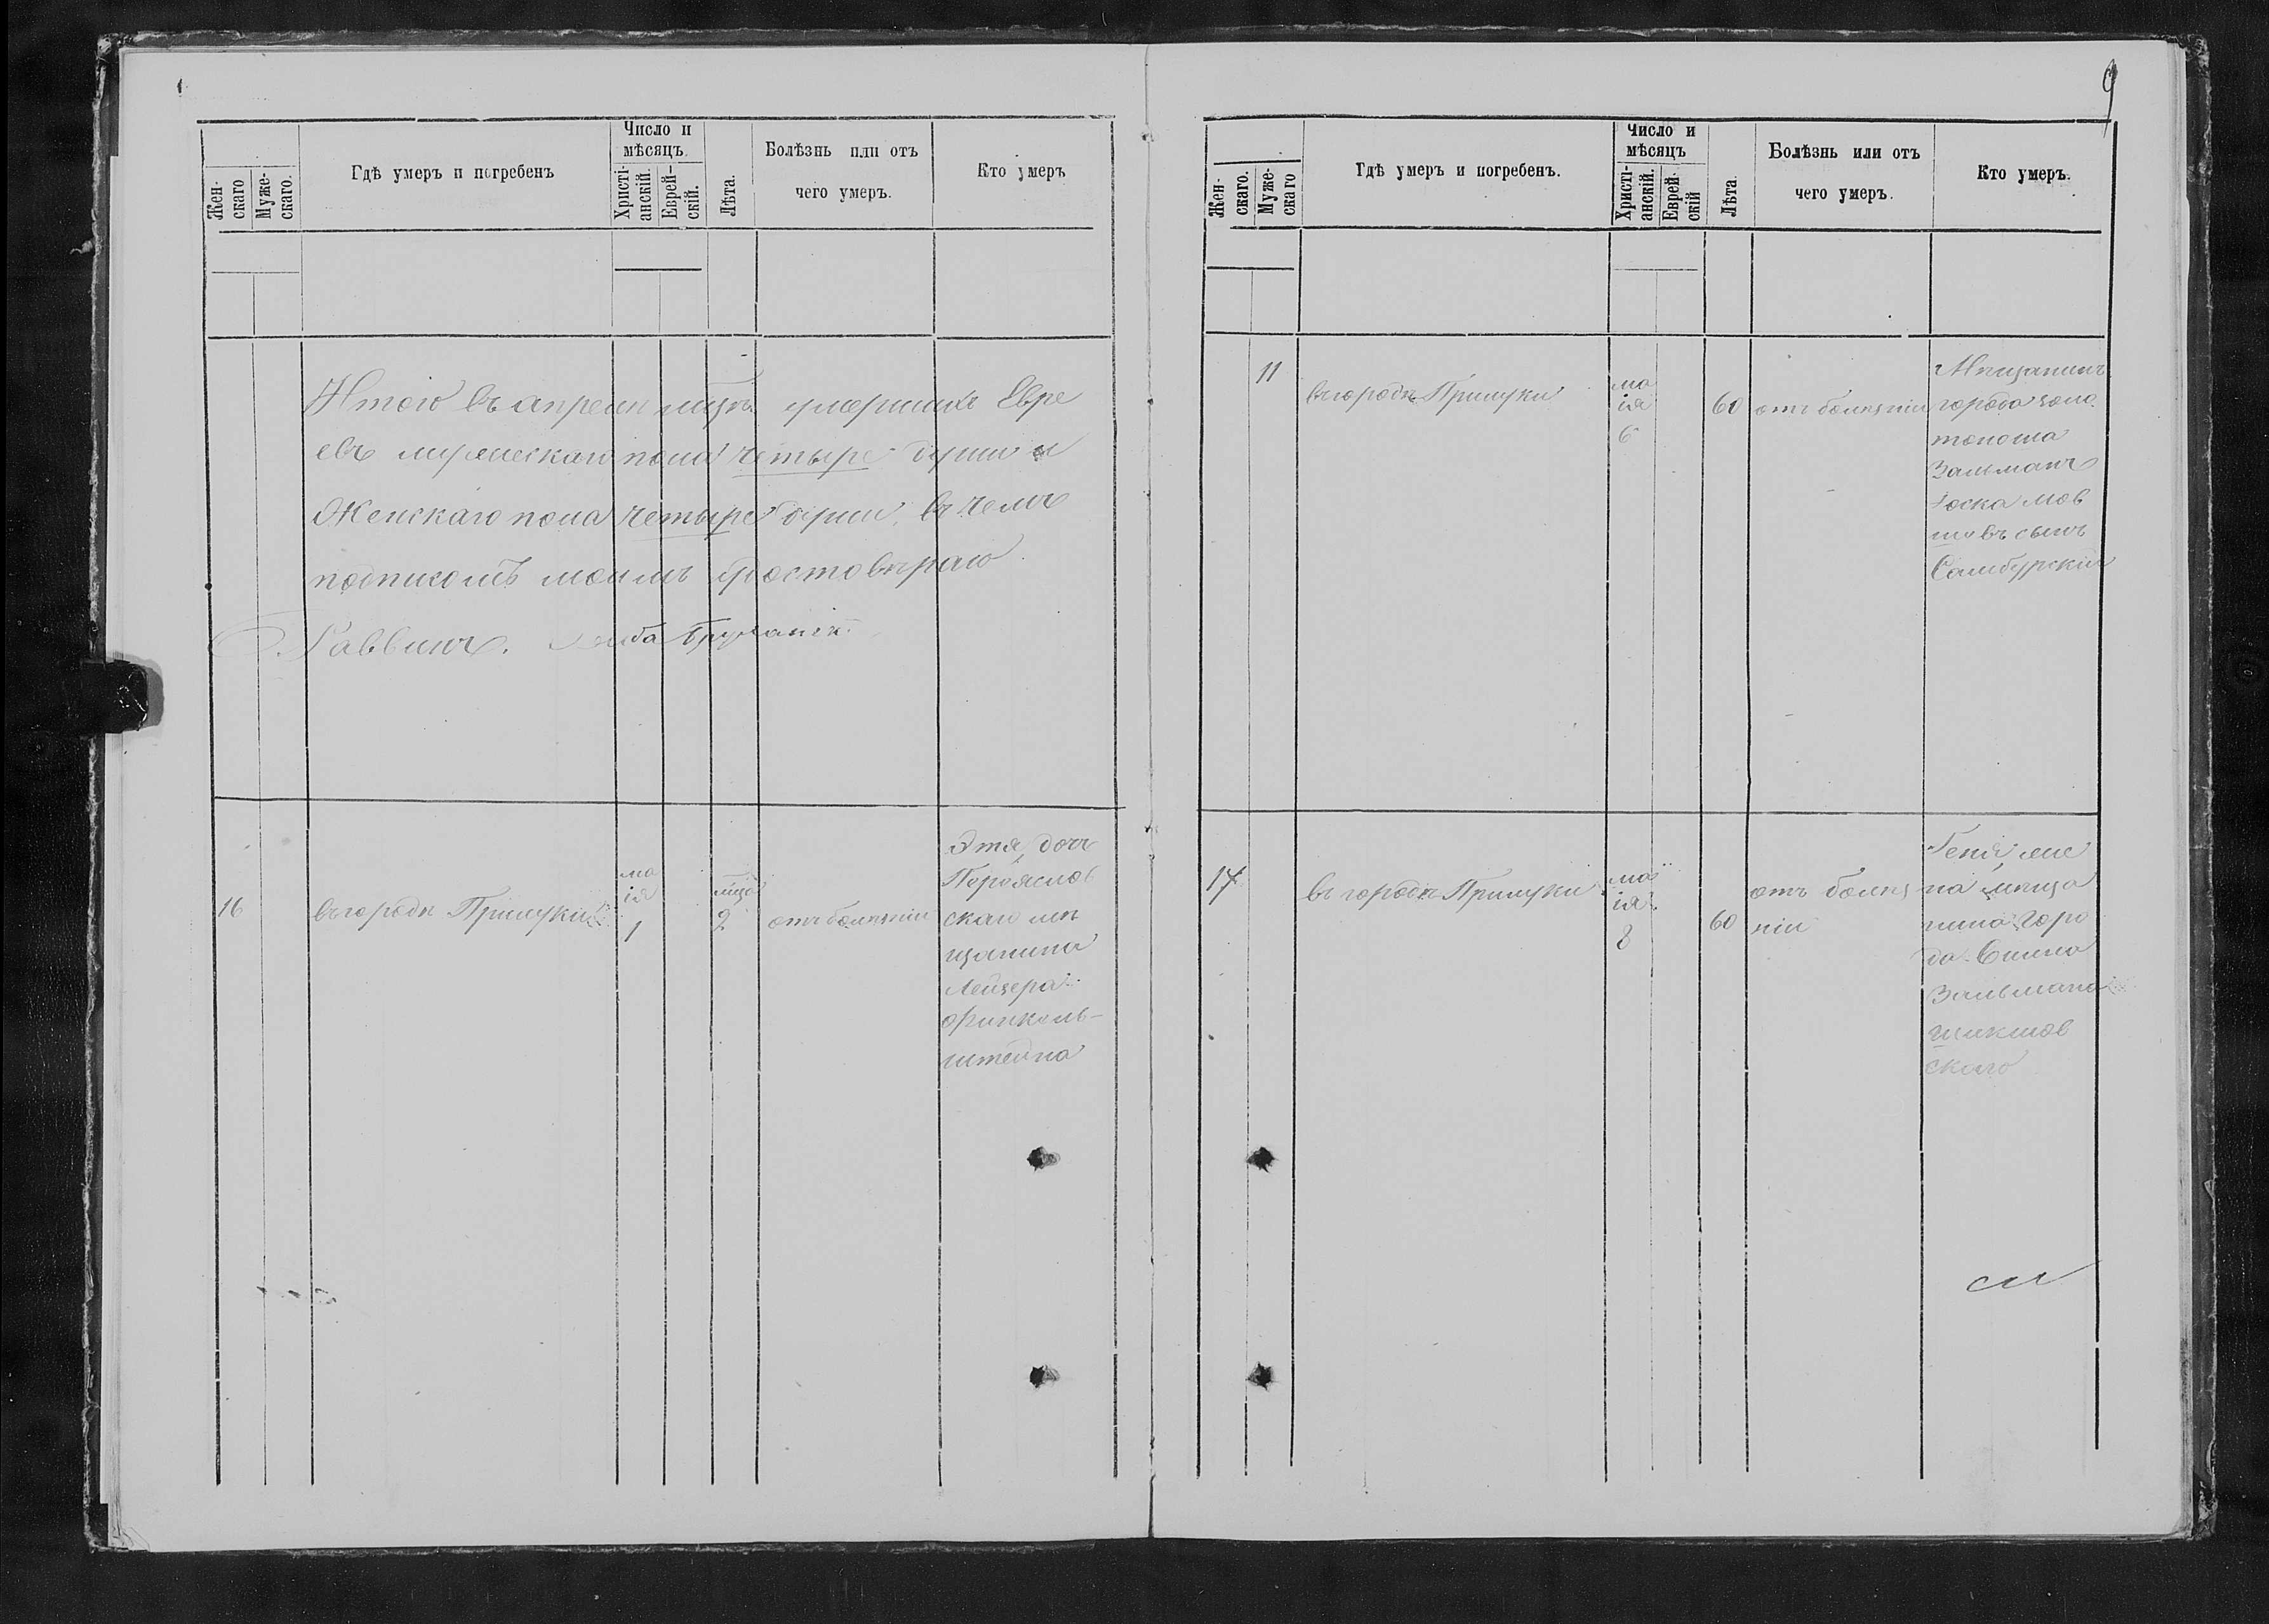 9
Жен-
скаго
Муже-
скаго.
Гдѣ умеръ и погребенъ
Число и
мѣсяцъ.
Христі-
анскій.
Еврей-
скій.
Лѣта.
Болѣзнь или отъ
чего умеръ.
Кто умеръ
Итого въ апрелѣ мцѣ умершихъ Евре
евъ мужескаго пола четыре души и
Женскаго пола четыре души, въ чемъ
подписомъ моимъ удостовѣраю
Раввинъ.
16
въ городѣ Прилуки
ма
ія
1
мца
2
отъ болѣзни
Этя дочь
Переяслов
скаго мѣ
щанина
Лейзера
Финкель-
штейна
Жен-
скаго.
Муже-
скаго
Гдѣ умеръ и погребенъ.
Число и
мѣсяцъ
Христі-
анскій.
Еврей.
скій
Лѣта.
Болѣзнь или отъ
чего умеръ.
Кто умеръ.
11
въ городѣ Прилуки
ма
ія
6
60
отъ болѣзніи
Мѣщанинъ
города золо
тоноша
Зальманъ
Іоска мов
шовъ сынъ
Самбурскій
17
въ городѣ Прилуки
ма
ія
8
60
отъ болѣз
ніи
Геня же
на мѣща
нина горо
да
Зальмана
скаго